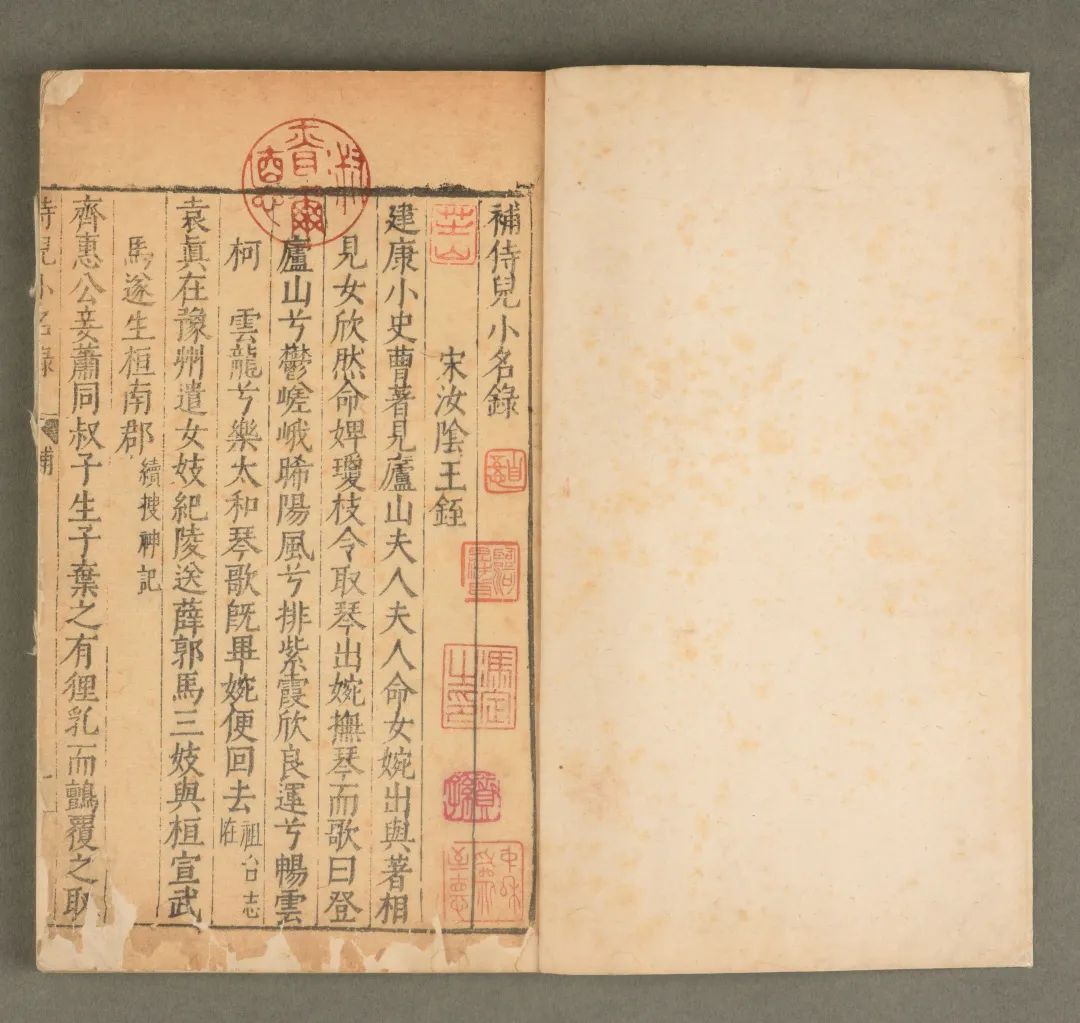 補侍兒小名錄
宋汝陰王銍
建康小史曹著見廬山夫人夫人命女婉出與著相
見女欣然命婢瓊枝令取琴出婉撫琴而歌曰登
廬山兮鬱嵯峨晞陽風兮排紫霞欣良運兮暢雲
柯 雲龍兮樂太和琴歌旣畢婉便回去祖台志
袁眞在豫州遣女妓紀陵送薛郭馬三妓與桓宣武
馬遂生桓南郡續搜神記
齊惠公妾蕭同叔子生子棄之有狸乳而鸇覆之取
侍兒小名錄 補